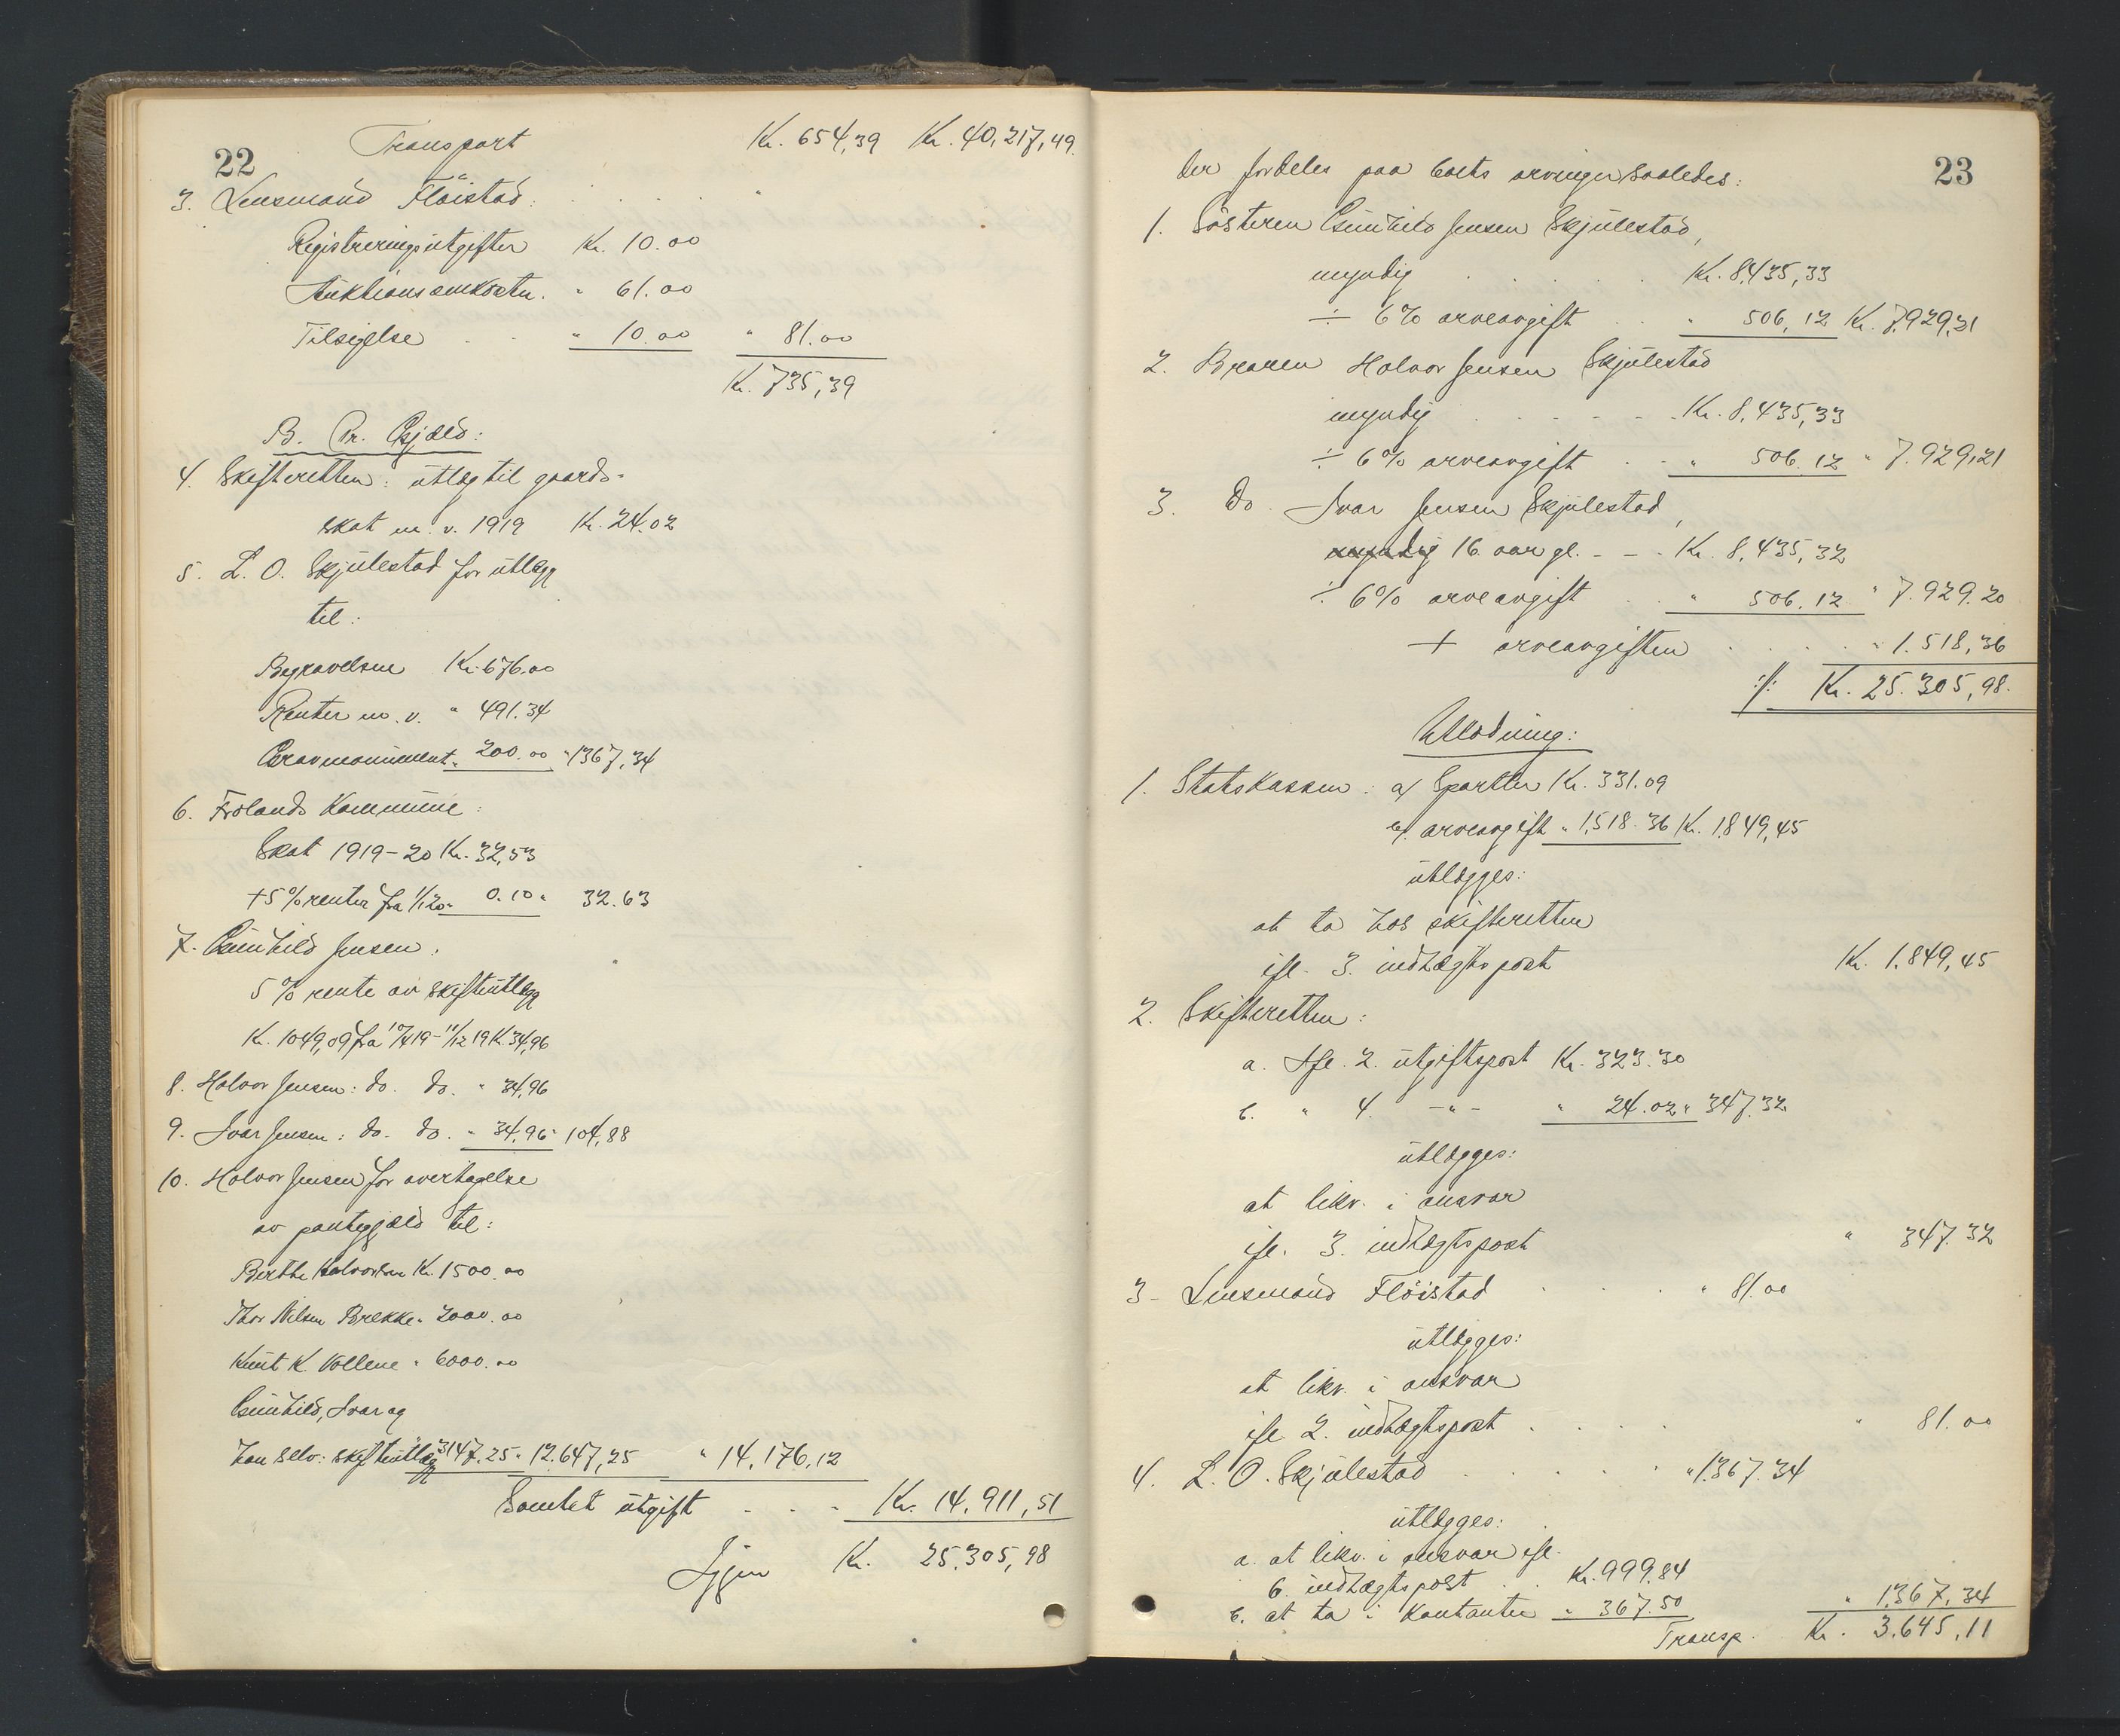 22
Transport Kr. 654,39 Kr. 40,217,49
3. Lensmand Flöistad:
Registreringsutgifter Kr. 10.00
Auktionsomkostn. " 61.00
Tilsigelse " 10.00 " 81.00
Kr. 735,39
B. Pr. Gjæld:
4. Skifteretten: utlæg til gaards-
skat m. v. 1919 Kr. 24.02
5. L. O. Skjulestad for utlægg
til:
Begravelsen Kr. 676.00
Renter m. v. " 491.34
Gravmonument " 200.00 " 1367,34
6. Frolands Kommune:
Skat 1919-20 Kr. 32,53
+ 5% renter fra 1/1 20 " 0.10 " 32.63
7. Gunhild Jensen:
5% rente av skifteutlægg
Kr. 1049,09 fra 10/4 19 - 11/12 19 K. 34,96
8. Halvor Jensen: do. do. " 34,96
9. Ivar Jensen: do. do. " 34,96 " 104,88
10. Halvor Jensen for overtagelse
av pantegjæld til:
Berthe Halvorsen Kr. 1500.00
Thor Nilsen Brekke " 2000.00
Knut K. Vollene " 6000.00
Gunhild, Ivar og
han selv: skifteutlægg " 3147.25 " 12.647,25 " 14,176,12
Samlet utgift Kr. 14,911,51
Igjen Kr. 25.305,98
23
der fordeles paa boets arvinger saaledes:
1. Søsteren Gunhild Jensen Skjulestad,
myndig Kr. 8,435,33
÷ 6% arveavgift " 506,12 Kr. 7,929,21
2. Broren Halvor Jensen Skjulestad
myndig Kr. 8,435,33
÷ 6% arveavgift " 506.12 " 7.929,21
3. Do. Ivar Jensen Skjulestad,
myndig 16 aar gl. - - Kr. 8,435,32
÷ 6% arveavgift " 506.12 " 7.929.20
+ arveavgiften " 1.518,36
:/: Kr. 25.305,98.
Utlodning:
1. Statskassen: a/ Sportler Kr. 331.09
b/. arveavgift " 1,518.36 Kr. 1,849,45
utlægges:
at ta hos skifteretten
ifl. 3. indtægtspost Kr. 1,849,45
2. Skifteretten:
a. Ifl. 2. utgiftspost Kr. 323.30
b. " 4. -"- " 24.02 " 347.32
utlægges:
at likv. i ansvar
ifl. 3. indtægtspost " 347.32
3- Lensmand Flöistad " 81.00
utlægges:
at likv. i ansvar
ifl. 2. indtægtspost " 81.00
4. L. O. Skjulestad " 1367.34
utlægges:
a. at likv. i ansvar ifl.
6. indtægtspost Kr. 999.84
b. at ta i kontanter " 367.50 " 1,367.34
Transp. Kr. 3.645,11